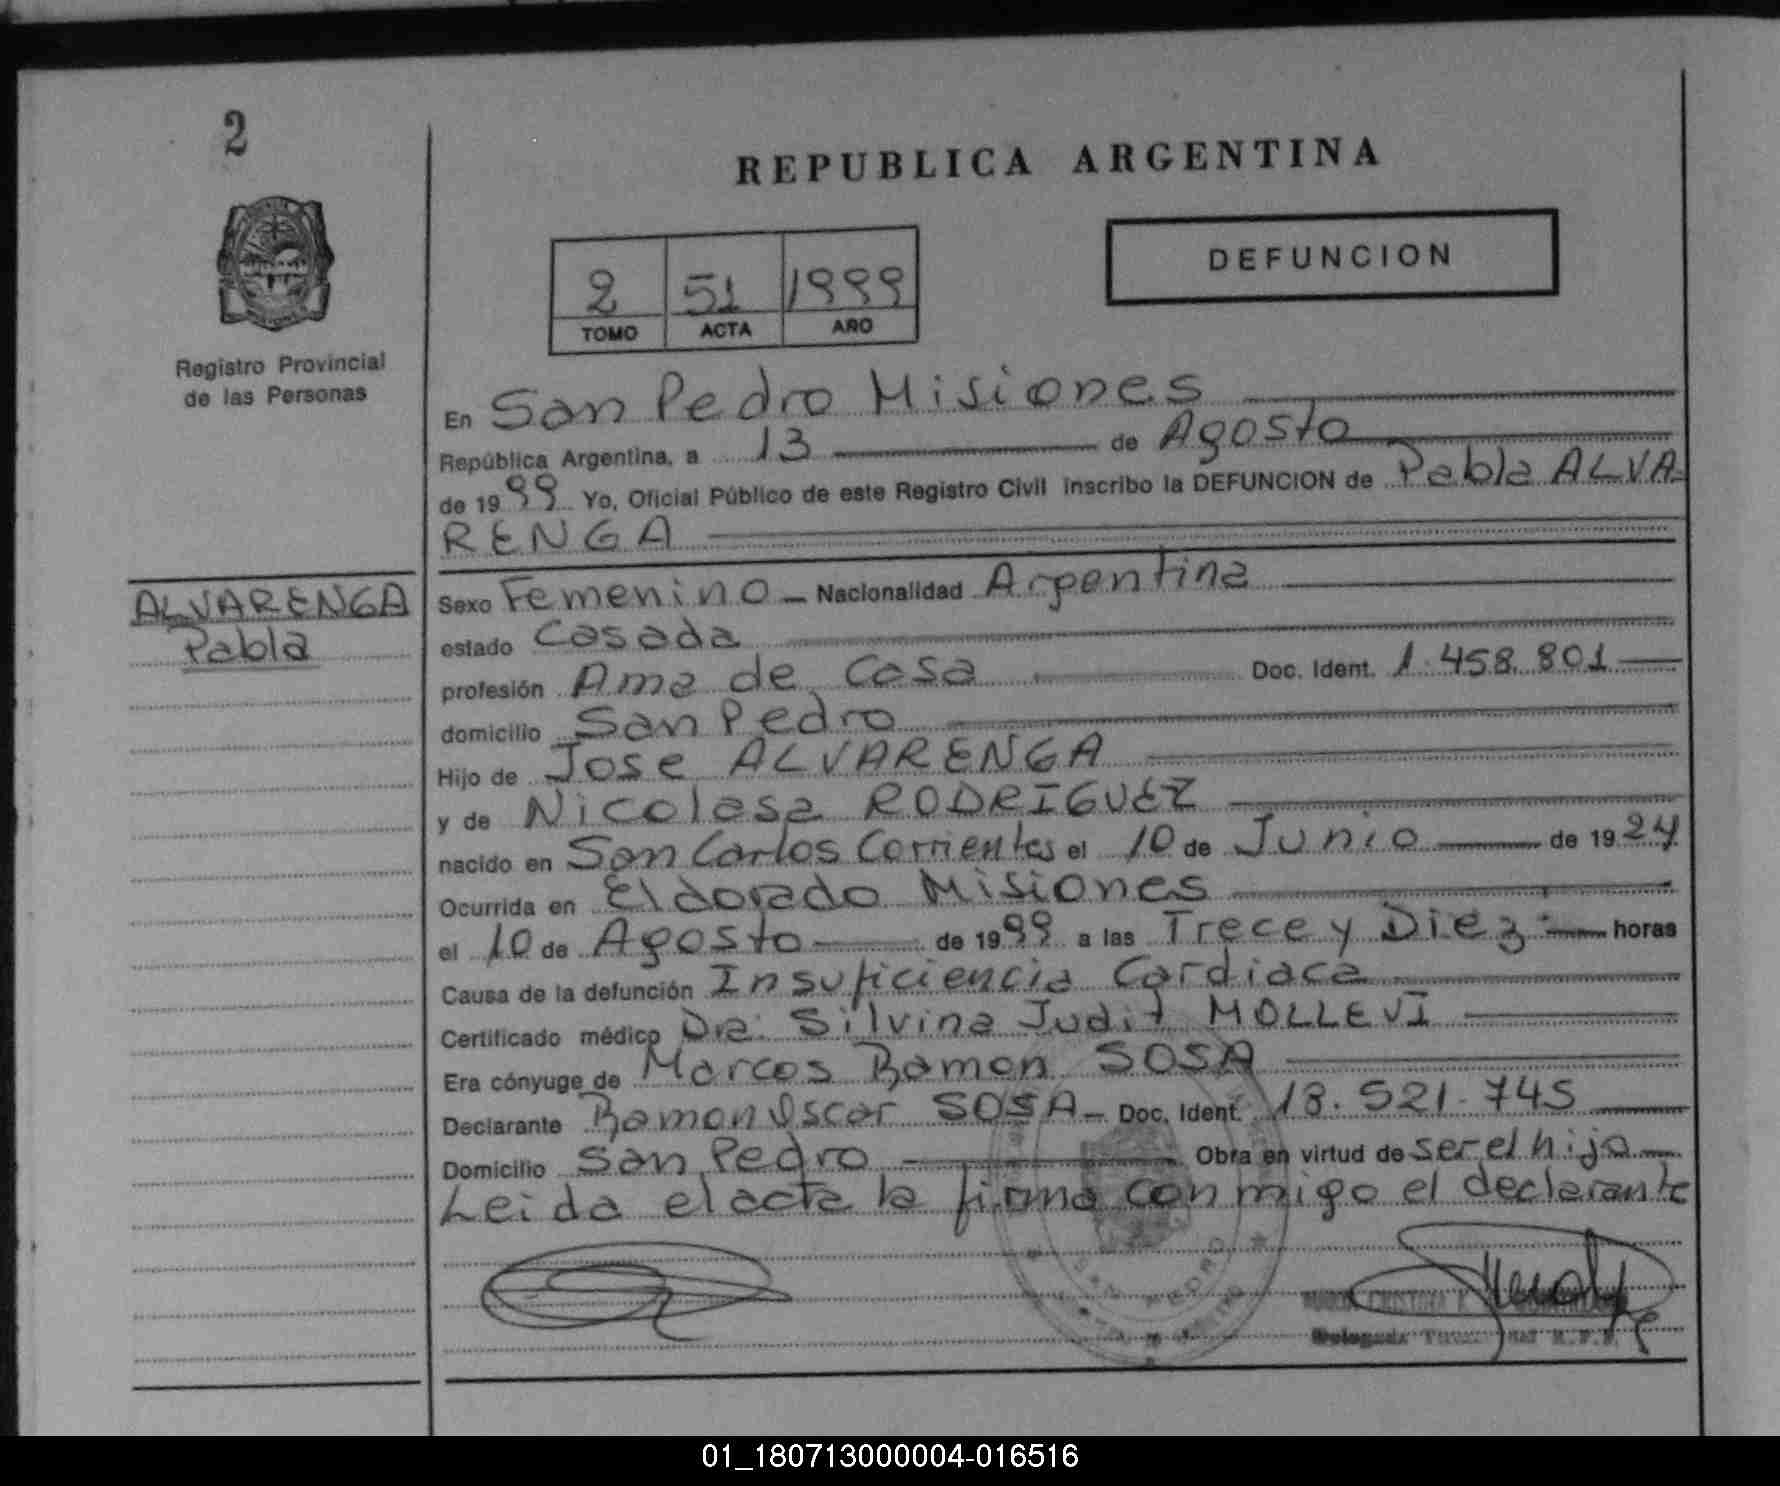 2
REPUBLICA ARGENTINA
DEFUNCION
2 51 1999
TOMO ACTA AÑO
Registro Provincial
de las Personas
En San Pedro Misiones
República Argentina, a 13 de Agosto
de 1999 Yo, Oficial Público de este Registro Civil inscribo la DEFUNCION de Pabla ALVA=
RENGA
ALVARENGA
Pabla
Sexo Femenino - Nacionalidad Argentina
estado Casada
profesión Ama de Casa Doc. Ident. 1.458.801
domicilio San Pedro
Hijo de Jose ALVARENGA
y de Nicolasa RODRIGUEZ
nacido en San Carlos Corrientes el 10 de Junio de 1924
Ocurrida en Eldorado Misiones
el 10 de Agosto de 1999 a las Trece y Diez horas
Causa de la defunción Insuficiencia Cardiaca
Certificado médico Dra. Silvina Judit MOLLEVI
Era cónyuge de Marcos Ramon SOSA
Declarante Ramon Oscar SOSA - Doc. Ident. 18.521.745
Domicilio San Pedro Obra en virtud de ser el hijo
Leida el acta la firma con migo el declarante
SAN PEDRO
CRISTINA
Delegada
01_180713000004-016516